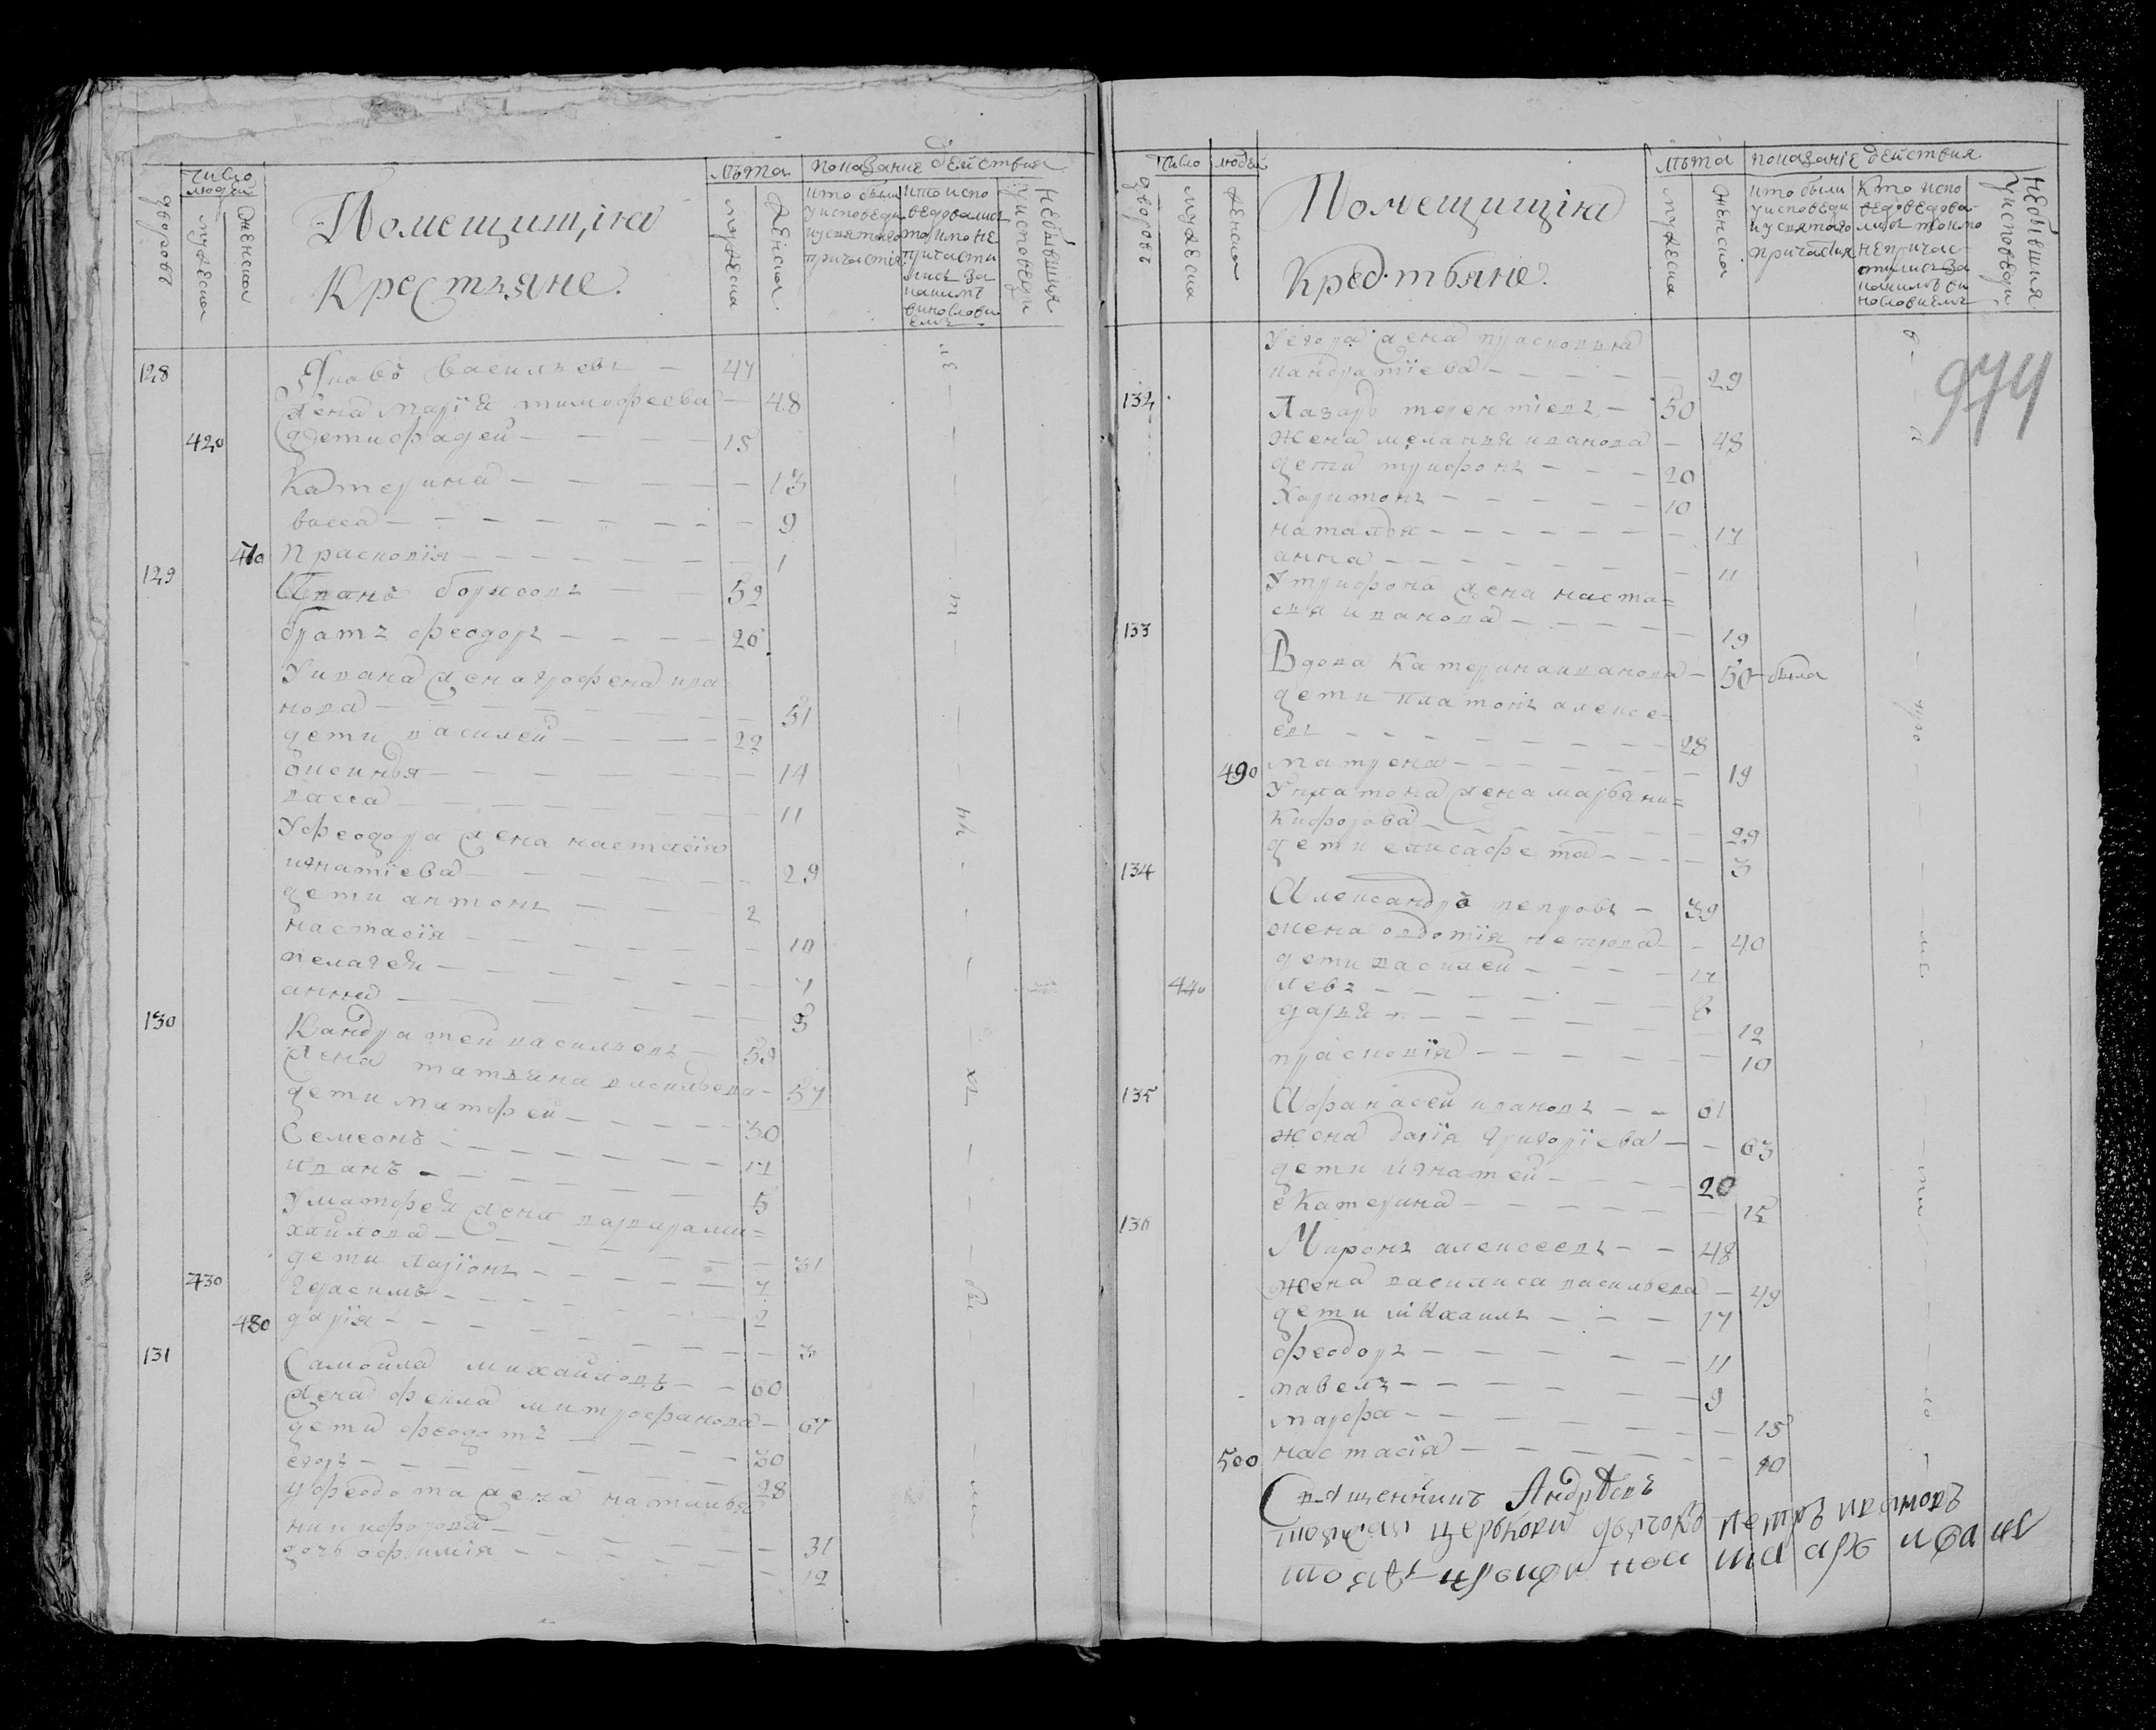 число людей
лѣта
показание действия
дворовъ
мужеска
женска
Помещищика
Крестьяне.
мужеска
женска
кто были у исповеди и у святаго причастия
кто испо
ведовался
токмо не
причасти
лись за
какимъ
винослови
емъ
небывшия у исповеди
128 Яковъ васильевъ — 47
жена марія тимофеева — 48
420 дети фадей — 15
Катерина — 13
васса — 9
470 прасковія — 1
129 Иванъ борисовъ — 52
братъ феодоръ — 26
У ивана жена агрофена ива
нова — 51
дети василей — 22
Оксинья — 14
васса — 11
У феодора жена настасія
игнатіева — 29
дети антонъ — 2
настасія — 10
пелагея — 7
анна — 5
130 Кандратей васильевъ — 59
жена татьяна васильева — 57
дети матфей — 30
Семеонъ — 17
иванъ — 5
У матфея жена варвара ми=
хайлова — 31
дети ларіонъ — 7
430 герасимъ — 2
480 дарія — 3
131 Самойла михайловъ — 60
жена фекла митрофанова — 67
дети феодотъ — 30
егоръ — 28
у феодота жена наталья
никифорова — 31
дочь офимія — 12
число людей
лѣта
показаніе действия
дворовъ
мужеска
женска
Помещищика
Крестьяне.
мужеска
женска
кто были
у исповеди
и у святаго
причастия
кто испо
ведовева-
лись токмо
не причас-
тились за
какимъ ви
нословиемъ
небывшия у исповеди
974
У егора жена прасковья
кандратіева — 29
132 Лазарь терентіевъ — 50
жена меланья иванова — 48
дети трифонъ — 20
Харитонъ — 10
наталья — 17
анна — 11
У трифона жена наста=
сья иванова — 19
133
Вдова Катерина иванова — 50 — была
дети платонъ алексе-
евъ — 28
490 матрена — 19
У платона жена марья ни=
кифорова — 29
дети елисафета — 3
134
Александръ петровъ — 39
жена овдотія петрова — 40
дети василей — 17
440 левъ — 6
дарья — 12
прасковія — 10
135 Афанасей ивановъ — 61
жена дарія григоріева — 63
дети игнатей — 20
екатерина — 15
136
Миронъ алексеевъ — 48
жена василиса васильева — 49
дети михаилъ — 17
феодоръ — 11
павелъ — 9
марфа — 15
500 настасія — 10
Священникъ Андрѣевъ
тоя же церкви дьячокъ петръ ивановъ
тоя же церкви пономарь иванъ